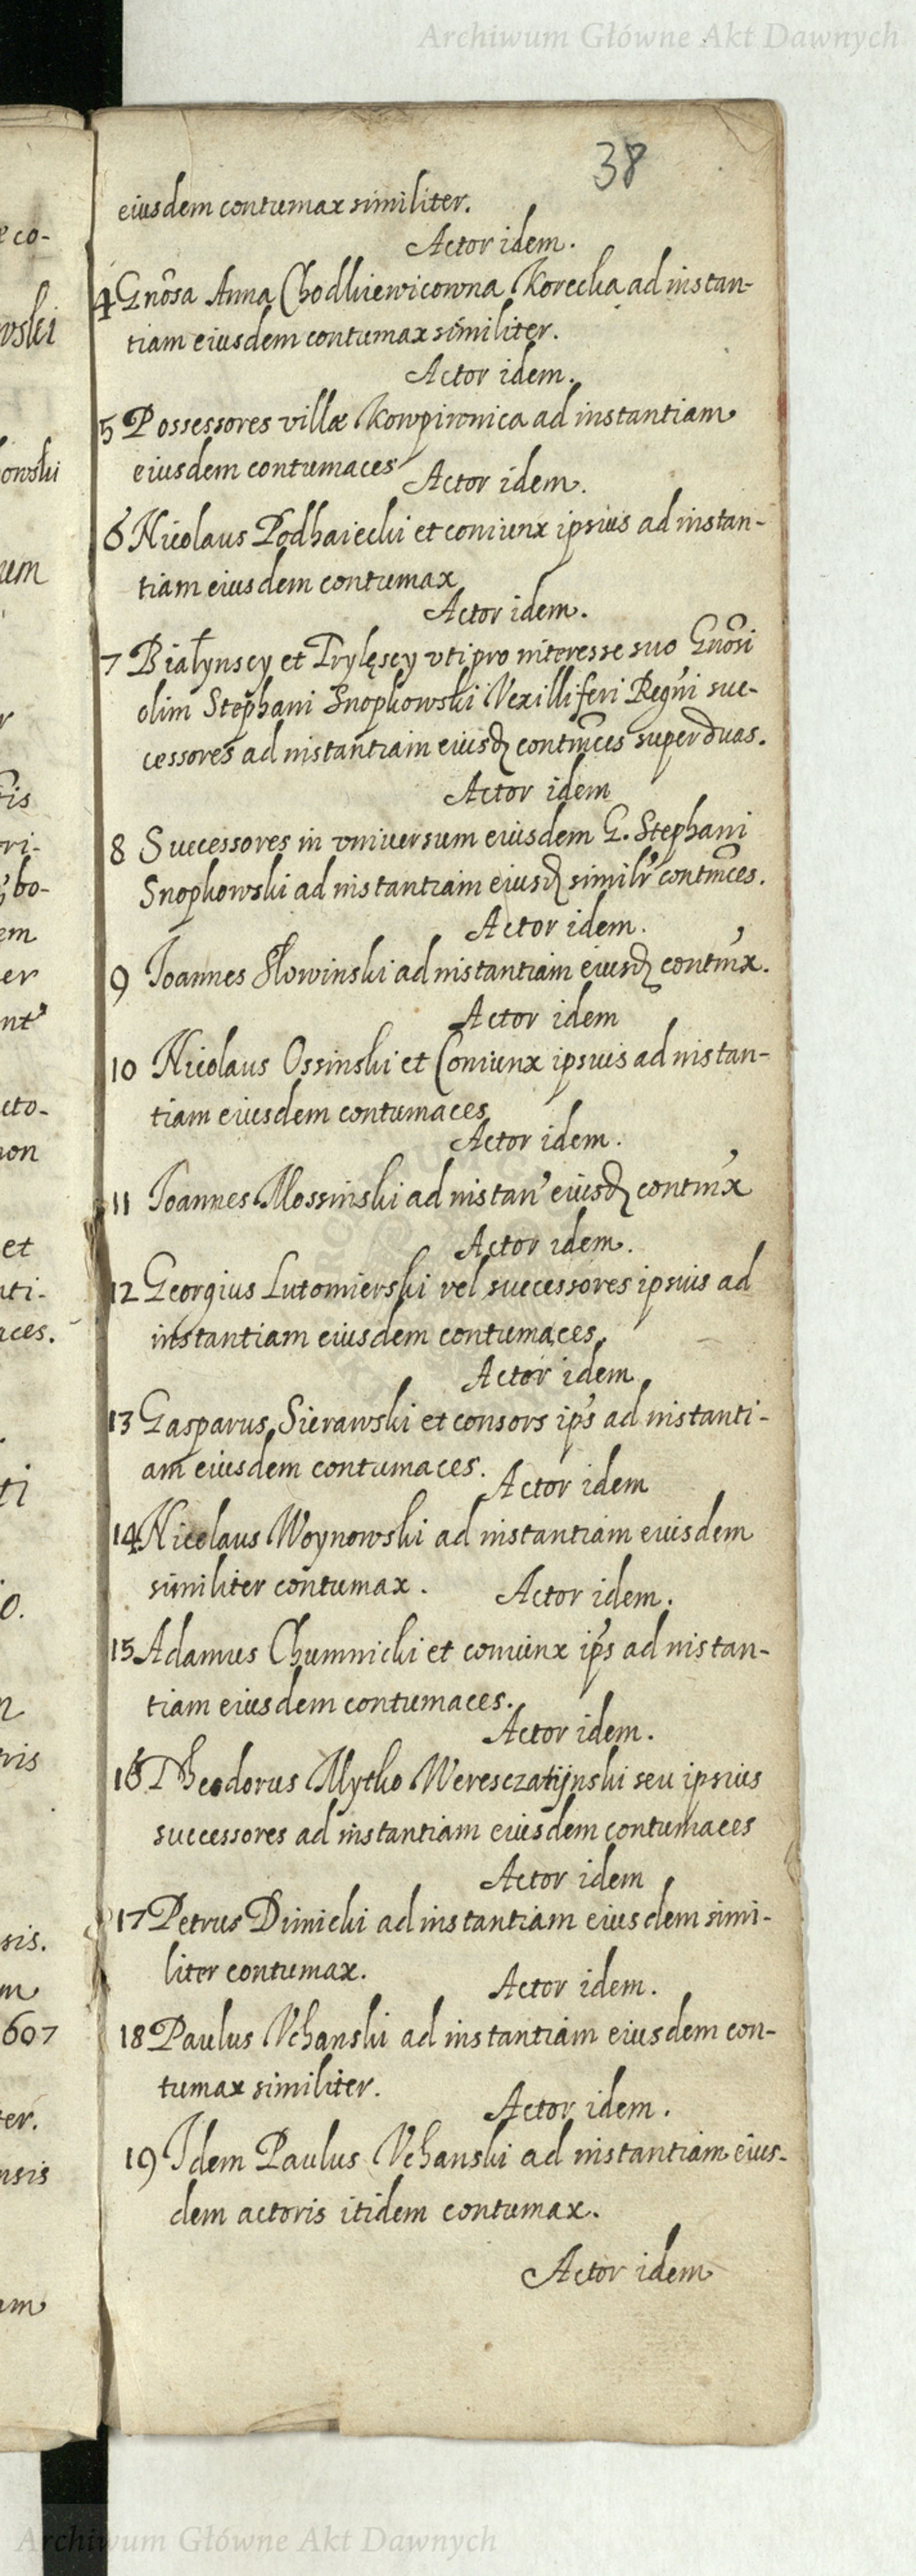 Archiwum Główne Akt Dawnych
38
eiusdem contumax similiter.
Actor idem.
4 Gnosa Anna Chodkiewicowna Korecka ad instan-
tiam eiusdem contumax similiter.
Actor idem.
5 Possessores villæ Kowpiwnica ad instantiam
eiusdem contumaces
Actor idem.
6 Nicolaus Podhaiecki et coniunx ipsius ad instan-
tiam eiusdem contumax
Actor idem.
7 Białynscy et Prylęscy uti pro interesse suo Gnosi
olim Stephani Snopkowski Vexilliferi Regni suc-
cessores ad instantiam eiusd contmces super duas.
Actor idem
8 Successores in vniuersum eiusdem G. Stephani
Snopkowski ad instantiam eiusd similr contmces.
Actor idem.
9 Joannes Słowinski ad instantiam eiusd contmx.
Actor idem
10 Nicolaus Ossinski et Coniunx ipsuis ad instan-
tiam eiusdem contumaces
Actor idem.
11 Joannes Mossinski ad instan eiusd contmx
Actor idem.
12 Georgius Lutomierski vel successores ipsuis ad
instantiam eiusdem contumaces,
Actor idem
13 Gasparus Sierawski et consors ips ad instanti-
am eiusdem contumaces.
Actor idem
14 Nicolaus Woynowski ad instantiam euisdem
similiter contumax.
Actor idem.
15 Adamus Chumnicki et coniunx ips ad instan-
tiam eiusdem contumaces.
Actor idem.
16 Theodorus Mytko Weresczatijnski seu ipsius
successores ad instantiam eiusdem contumaces
Actor idem
17 Petrus Dimicki ad instantiam eiusdem simi-
liter contumax.
Actor idem.
18 Paulus Vchanski ad instantiam eiusdem con-
tumax similiter.
Actor idem.
19 Idem Paulus Vchanski ad instantiam eius-
dem actoris itidem contumax.
Actor idem
Archiwum Główne Akt Dawnych